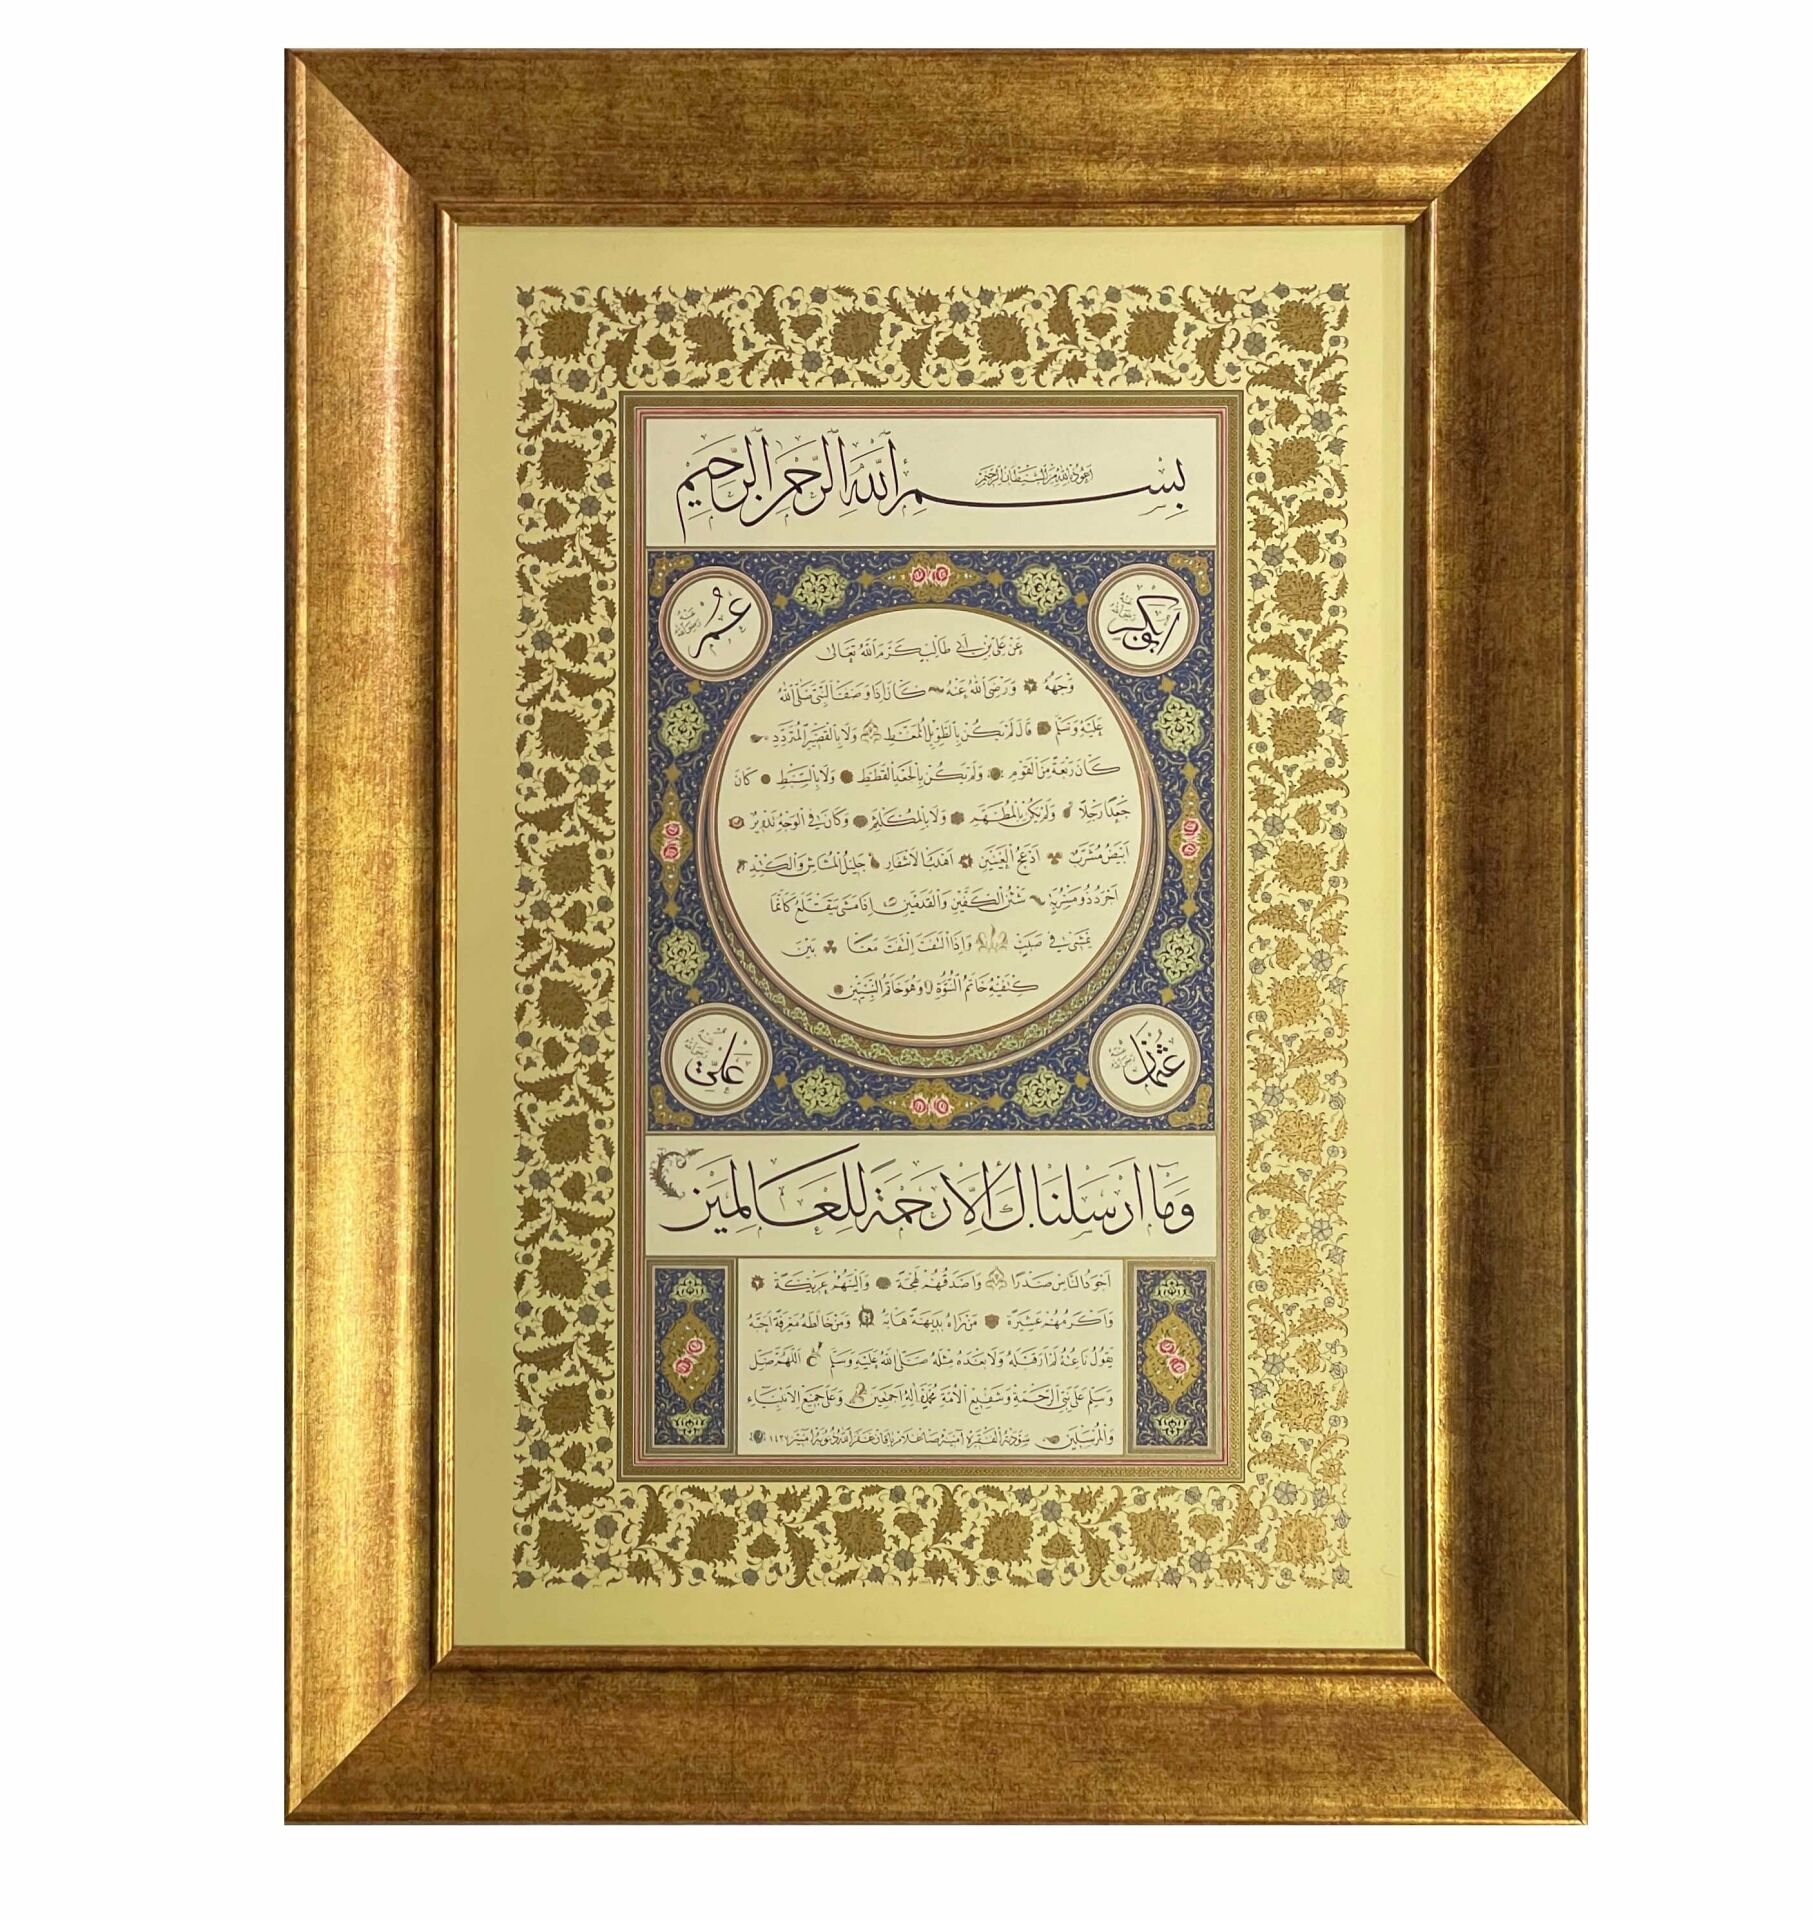 بِسْمِ اللهِ الرَّحْمٰنِ الرَّحِيمِ
اعوذ بالله من الشيطان الرجيم
ابوبكر رضي الله عنه
عُمَر رضي الله عنه
عَنْ عَلِيِّ بْنِ اَبِي طَالِبٍ كَرَّمَ اللهُ تَعَالٰى
وَجْهَهُ وَرَضِيَ اللهُ عَنْهُ كَانَ اِذَا وَصَفَ النَّبِيَّ صَلَّى اللهُ
عَلَيْهِ وَسَلَّمَ قَالَ لَمْ يَكُنْ بِالطَّوِيلِ الْمُمَغَّطِ وَلَا بِالْقَصِيرِ الْمُتَرَدِّدِ
كَانَ رَبْعَةً مِنَ الْقَوْمِ وَلَمْ يَكُنْ بِالْجَعْدِ الْقَطَطِ وَلَا بِالسَّبِطِ كَانَ
جَعْدًا رَجِلًا وَلَمْ يَكُنْ بِالْمُطَهَّمِ وَلَا بِالْمُكَلْثَمِ وَكَانَ فِي الْوَجْهِ تَدْوِيرٌ
اَبْيَضُ مُشْرَبٌ اَدْعَجُ الْعَيْنَيْنِ اَهْدَبُ الْاَشْفَارِ جَلِيلُ الْمُشَاشِ وَالْكَتِدِ
اَجْرَدُ ذُو مَسْرُبَةٍ شَثْنُ الْكَفَّيْنِ وَالْقَدَمَيْنِ اِذَا مَشٰى يَتَقَلَّعُ كَاَنَّمَا
يَمْشِي فِي صَبَبٍ وَاِذَا الْتَفَتَ اِلْتَفَتَ مَعًا بَيْنَ
كَتِفَيْهِ خَاتَمُ النُّبُوَّةِ وَهُوَ خَاتَمُ النَّبِيِّينَ
عُثْمَان
عَلِيّ
وَمَآ اَرْسَلْنَاكَ اِلَّا رَحْمَةً لِلْعَالَمِينَ
اَجْوَدُ النَّاسِ صَدْرًا وَاَصْدَقُهُمْ لَهْجَةً وَاَلْيَنُهُمْ عَرِيكَةً
وَاَكْرَمُهُمْ عَشِيرَةً مَنْ رَاٰهُ بَدِيهَةً هَابَهُ وَمَنْ خَالَطَهُ مَعْرِفَةً اَحَبَّهُ
يَقُولُ نَاعِتُهُ لَمْ اَرَ قَبْلَهُ وَلَا بَعْدَهُ مِثْلَهُ صَلَّى اللهُ عَلَيْهِ وَسَلَّمَ اَللّٰهُمَّ صَلِّ
وَسَلِّمْ عَلٰى نَبِيِّ الرَّحْمَةِ وَشَفِيعِ الْاُمَّةِ مُحَمَّدٍ وَاٰلِهِ اَجْمَعِينَ وَعَلٰى جَمِيعِ الْاَنْبِيَاءِ
وَالْمُرْسَلِينَ